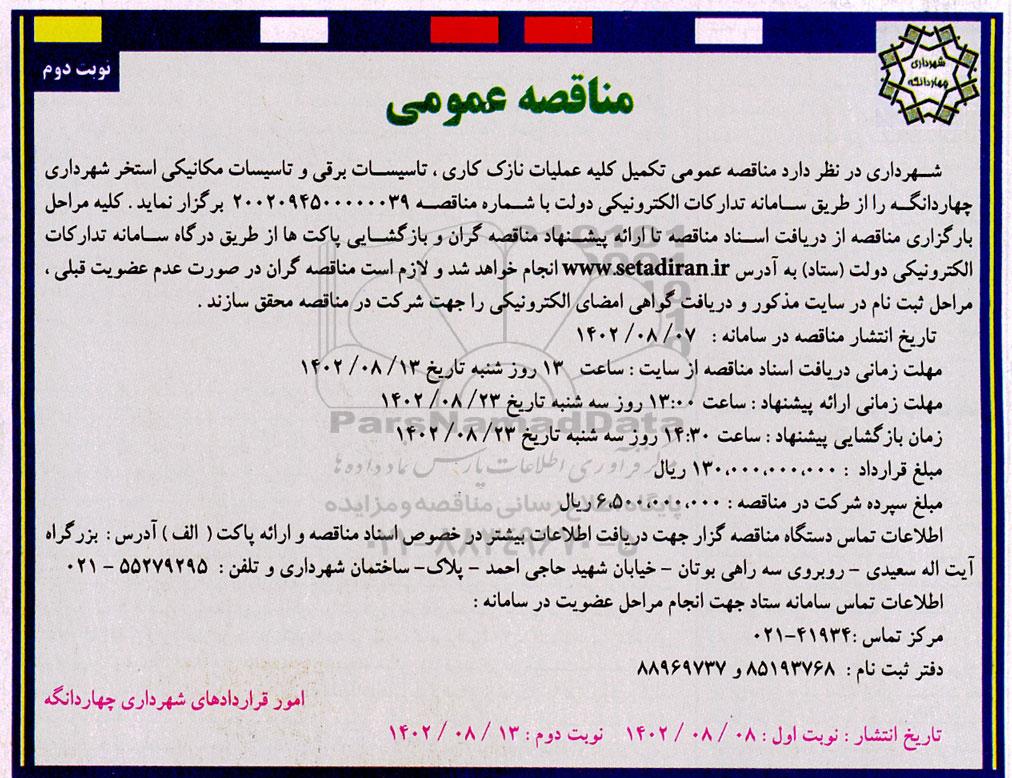 شهرداری
چهاردانگه
نوبت دوم
مناقصه عمومی
شهرداری در نظر دارد مناقصه عمومی تکمیل کلیه عملیات نازک کاری ، تاسیسات برقی و تاسیسات مکانیکی استخر شهرداری
چهاردانگه را از طریق سامانه تدارکات الکترونیکی دولت با شماره مناقصه ۲۰۰۲۰۹۴۵۰۰۰۰۰۰۳۹ برگزار نماید . کلیه مراحل
بارگزاری مناقصه از دریافت اسناد مناقصه تا ارائه پیشنهاد مناقصه گران و بازگشایی پاکت ها از طریق درگاه سامانه تدارکات
الکترونیکی دولت (ستاد) به آدرس www.setadiran.ir انجام خواهد شد و لازم است مناقصه گران در صورت عدم عضویت قبلی ،
مراحل ثبت نام در سایت مذکور و دریافت گواهی امضای الکترونیکی را جهت شرکت در مناقصه محقق سازند .
تاریخ انتشار مناقصه در سامانه : ۱۴۰۲/۰۸/۰۷
مهلت زمانی دریافت اسناد مناقصه از سایت : ساعت ۱۳ روز شنبه تاریخ ۱۴۰۲/۰۸/۱۳
مهلت زمانی ارائه پیشنهاد : ساعت ۱۳:۰۰ روز سه شنبه تاریخ ۱۴۰۲/۰۸/۲۳
زمان بازگشایی پیشنهاد : ساعت ۱۴:۳۰ روز سه شنبه تاریخ ۱۴۰۲/۰۸/۲۳
ParsNamadData
مبلغ قرارداد : ۱۳۰,۰۰۰,۰۰۰,۰۰۰ ریال
مرکز فرآوری اطلاعات پارس نماد داده ها
مبلغ سپرده شرکت در مناقصه : ۶,۵۰۰,۰۰۰,۰۰۰ ریال
پایگاه اطلاع رسانی مناقصه و مزایده
اطلاعات تماس دستگاه مناقصه گزار جهت دریافت اطلاعات بیشتر در خصوص اسناد مناقصه و ارائه پاکت ( الف ) آدرس : بزرگراه
۰۲۱-۸۸۳۴۹۶۷۰-۵
آیت اله سعیدی – روبروی سه راهی بوتان – خیابان شهید حاجی احمد – پلاک– ساختمان شهرداری و تلفن : ۵۵۲۷۹۲۹۵ – ۰۲۱
اطلاعات تماس سامانه ستاد جهت انجام مراحل عضویت در سامانه :
مرکز تماس :۴۱۹۳۴-۰۲۱
دفتر ثبت نام : ۸۵۱۹۳۷۶۸ و ۸۸۹۶۹۷۳۷
امور قراردادهای شهرداری چهاردانگه
تاریخ انتشار : نوبت اول : ۱۴۰۲/۰۸/۰۸ نوبت دوم : ۱۴۰۲/۰۸/۱۳